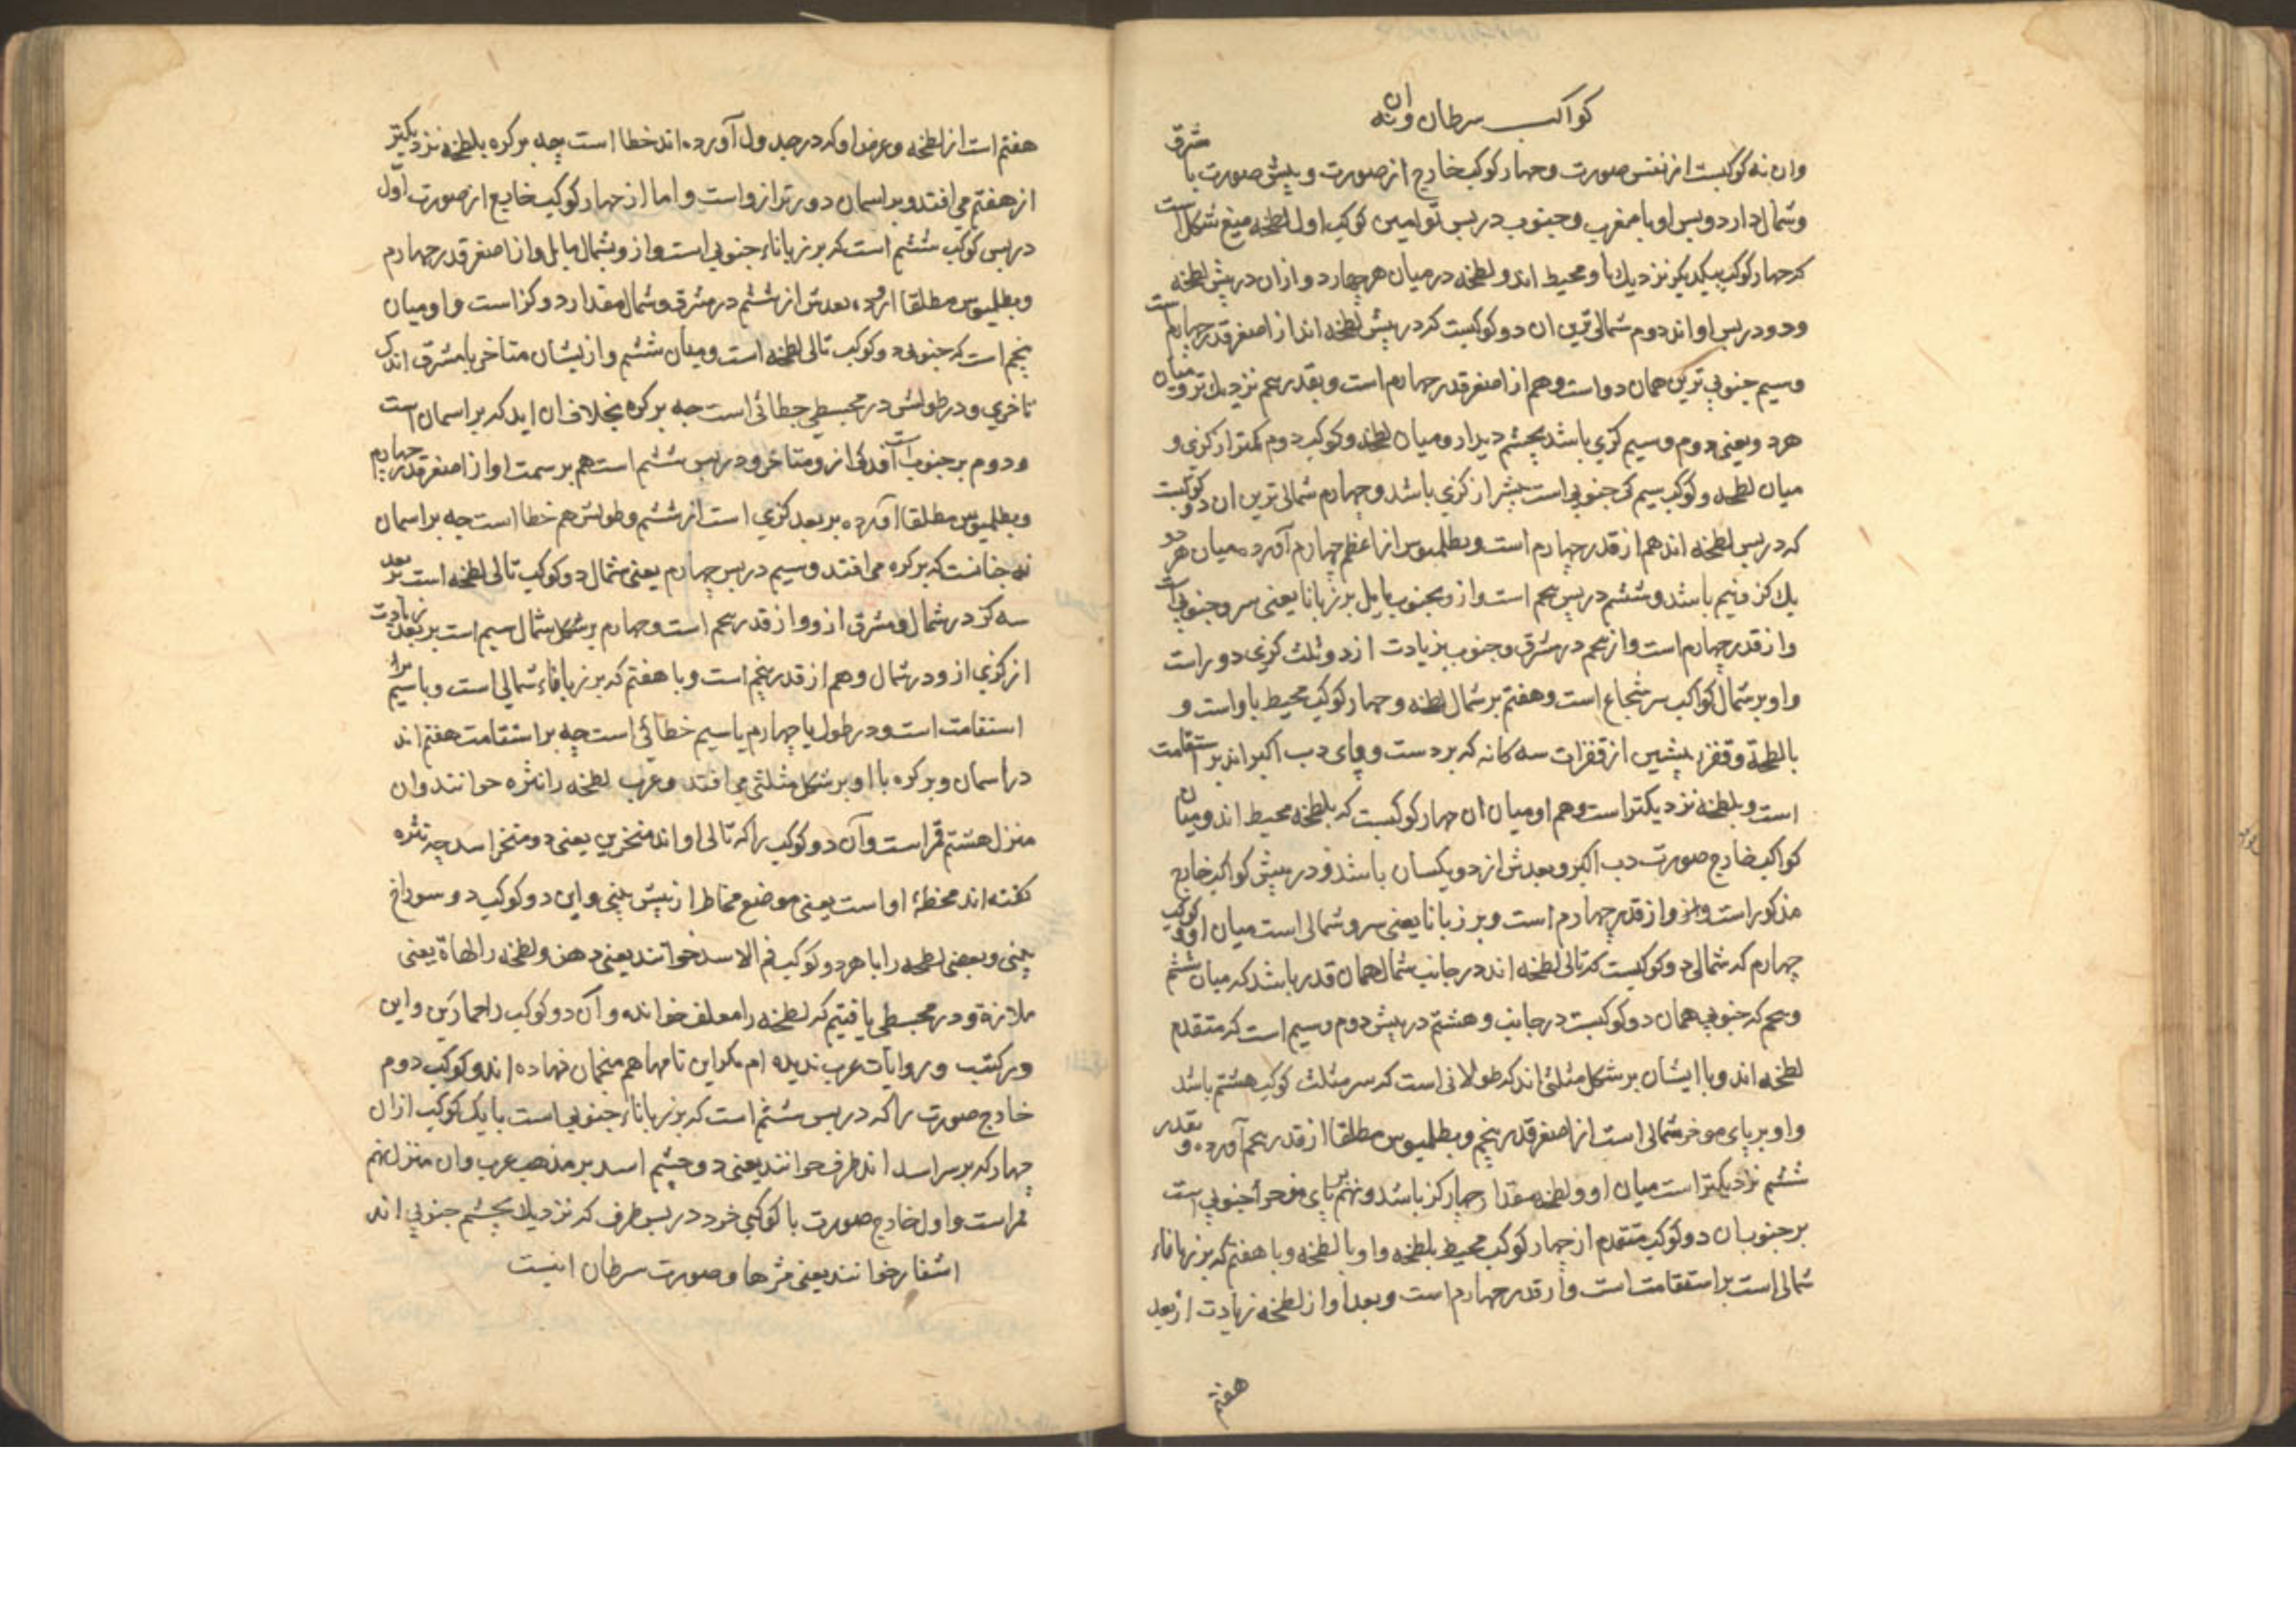 کواکب سرطان وان نه
وان نه کوکبست از نفس صورت وچهار کوکب خارج از صورت و پیش صورت با شرق
وشمال دارد وپس او با مغرب وجنوب در پس توامین کوکب اول لطخه میغ شکل است
که چهار کوکب بیکدیکر نزدیك با و محیط اند و لطخه در میان هر چهار دو ازان در پیش لطخه
ودو در پس او اند دوم شمالی ترین ان دو کوکبست که در پیش لطخه اند از اصغر قدر چهارم است
وسیم جنوبی ترین همان دو است وهم از اصغر قدر چهارم است و بقدر پنجم نزدیك تر ومیان
هر دو یعنی دوم وسیم کزی باشد بچشم دیدار ومیان لطخه وکوکب دوم کمتر از کزی و
میان لطخه وکوکب سیم که جنوبی است بیشتر از کزی باشد وچهارم شمالی ترین ان دو کوکبست
که در پس لطخه اند هم از قدر چهارم است و بطلمیوس از اعظم چهارم آورده میان هر دو
یك کز ونیم باشد وششم در پس پنجم است واز و بجنوب مایل بر زبانا یعنی سرو جنوبی است
واز قدر چهارم است واز پنجم در مشرق وجنوب بزیادت از دو ثلث کزی دور است
واو بر شمال کواکب سر شجاع است وهفتم بر شمال لطخه وچهار کوکب محیط باو است و
با لطخه وقفزه پیشین از قفزات سه کانه که بر دست و پای دب اکبر اند بر استقامت
است و بلطخه نزدیکتر است وهم او میان ان چهار کوکبست که بلطخه محیط اند ومیان
کواکب خارج صورت دب اکبر وبعدش از دو یکسان باشد ودر پیش کواکب خارج
مذکور است واز قدر چهارم است وبر زبانا یعنی سرو شمالی است میان او وکوکب
چهارم که شمالی دو کوکبست که تالی لطخه اند در جانب شمال همان قدر باشد که میان ششم
وپنجم که جنوبی همان دو کوکبست در جانب وهشتم در پیش دوم وسیم است که متقدم
لطخه اند وبا ایشان بر شکل مثلثی اند که طولانی است که سر مثلث کوکب هشتم باشد
واو بر پای موخر شمالی است از اصغر قدر پنجم و بطلمیوس مطلقا از قدر پنجم آورده و بقدر
ششم نزدیکتر است میان او ولطخه مقدار چهار کز باشد ونهم بر پای موخر جنوبی است
بر جنوب ان دو کوکب متقدم از چهار کوکب محیط بلطخه واو با لطخه وبا هفتم که بر زبانا‌ء
شمالی است بر استقامت است واز قدر چهارم است وبعد او از لطخه زیادت از بعد
هفتم
هفتم است از لطخه وعرض او که در جدول آورده اند خطا است چه بر کره بلطخه نزدیکتر
از هفتم می افتد وبر اسمان دورتر ازو است واما از چهار کوکب خارج از صورت اوّل
در پس کوکب ششم است که بر زباناء جنوبی است واز و بشمال مایل واز اصغر قدر چهارم
وبطلمیوس مطلقا آورده بعدش از ششم در مشرق وشمال مقدار دو کز است واو میان
پنجم است که جنوبی دو کوکب تالی لطخه است ومیان ششم واز یشان متاخر با مشرق اندک
تاخری ودر طولش در مجسطی خطائی است چه بر کره بخلاف ان اید که بر اسمان است
ودوم بر جنوب است اندکی ازو متاخر ودر پس ششم است هم بر سمت او از اصغر قدر چهارم
وبطلمیوس مطلقا آورده بر بعد کزی است از ششم وطولش هم خطا است چه بر اسمان
نه چنانست که بر کره می افتد وسیم در پس چهارم یعنی شمال دو کوکب تالی لطخه است بر بعد
سه کز در شمال ومشرق ازو واز قدر پنجم است وچهارم بر شکل شمال سیم است بر بعد زیادت
از کزی از ودر شمال وهم از قدر پنجم است وبا هفتم که بر زباناء شمالی است وبا سیم بر
استقامت است ودر طول یا چهارم یا سیم خطائی است چه بر استقامت هفتم اند
در اسمان وبر کره با او بر شکل مثلثی می افتد وعرب لطخه را نثره خوانند وان
منزل هشتم قمر است وآن دو کوکب را که تالی او اند منخرین یعنی دو منخر اسد چه نثره
کفته اند مخطهٔ او است یعنی موضع مخاط از پیش بینی واین دو کوکب دو سوراخ
بینی وبعضی لطخه را با هر دو کوکب فم الاسد خوانند یعنی دهن ولطخه را لهاة یعنی
ملازة ودر مجسطی یافتیم که لطخه را معلف خوانده وآن دو کوکب را حمارین واین
ودر کتب وروایات عرب ندیده ام مکر این نامها هم منجمان نهاده اند وکوکب دوم
خارج صورت را که در پس ششم است که بر زباناء جنوبی است با یک کوکب ازان
چهار که بر سر اسد اند طرف خوانند یعنی دو چشم اسد بر مذهب عرب وان منزل نهم
قمر است واول خارج صورت با کوکبی خرد در پس طرف که نزدیك بچشم جنوبی اند
اشفار خوانند یعنی مژها وصورت سرطان اینست